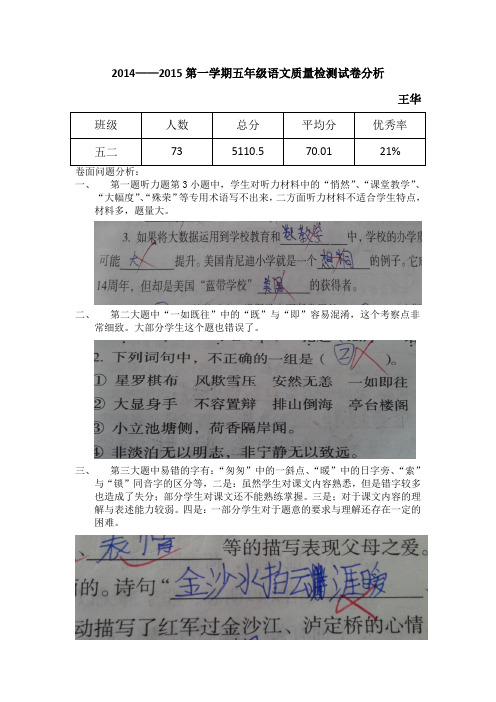 2014——2015第一学期五年级语文质量检测试卷分析
王华
班级 人数 总分 平均分 优秀率
五二 73 5110.5 70.01 21%
卷面问题分析：
一、 第一题听力题第3小题中，学生对听力材料中的“悄然”、“课堂教学”、
“大幅度”、“殊荣”等专用术语写不出来，二方面听力材料不适合学生特点，
材料多，题量大。
3. 如果将大数据运用到学校教育和 中，学校的办学质
可能 大 提升。美国肯尼迪小学就是一个 的例子。它
14周年，但却是美国“蓝带学校” 美国 的获得者。
二、 第二大题中“一如既往”中的“既”与“即”容易混淆，这个考察点非
常细致。大部分学生这个题也错误了。
2. 下列词句中，不正确的一组是（ ② ）。
① 星罗棋布 风欺雪压 安然无恙 一如即往
② 大显身手 不容置辩 排山倒海 亭台楼阁
③ 小立池塘侧，荷香隔岸闻。
④ 非淡泊无以明志，非宁静无以致远。
三、 第三大题中易错的字有：“匆匆”中的一斜点、“暖”中的日字旁、“索”
与“锁”同音字的区分等，二是：虽然学生对课文内容熟悉，但是错字较多
也造成了失分；部分学生对课文还不能熟练掌握。三是：对于课文内容的理
解与表述能力较弱。四是：一部分学生对于题意的要求与理解还存在一定的
困难。
、表情 等的描写表现父母之爱。
的。诗句“金沙水拍云 崖暖
动描写了红军过金沙江、泸定桥的心情